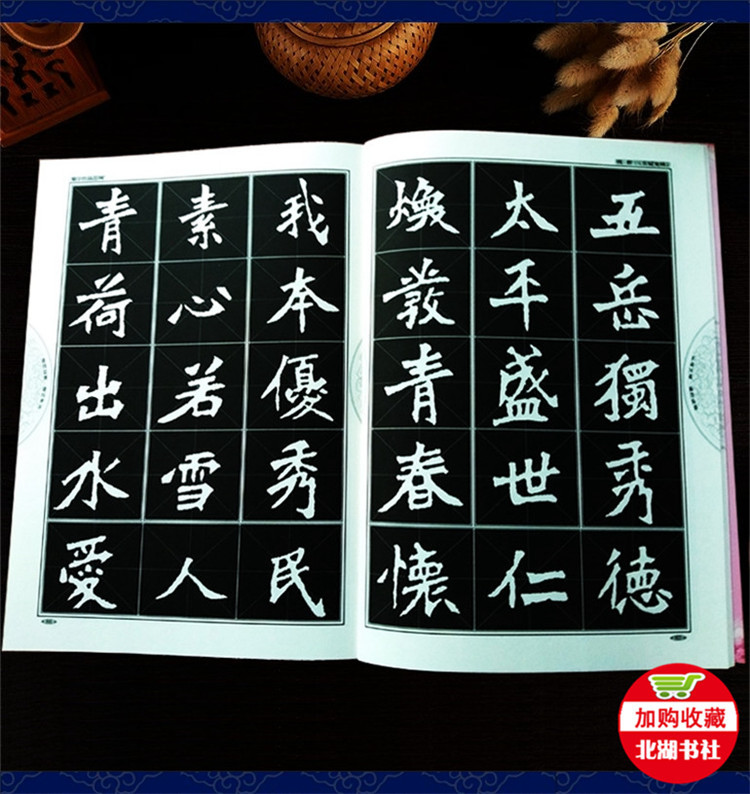 五岳獨秀德
太平盛世仁
煥發青春懷
我本優秀民
素心若雪人
青荷出水愛
加购收藏
北湖书社